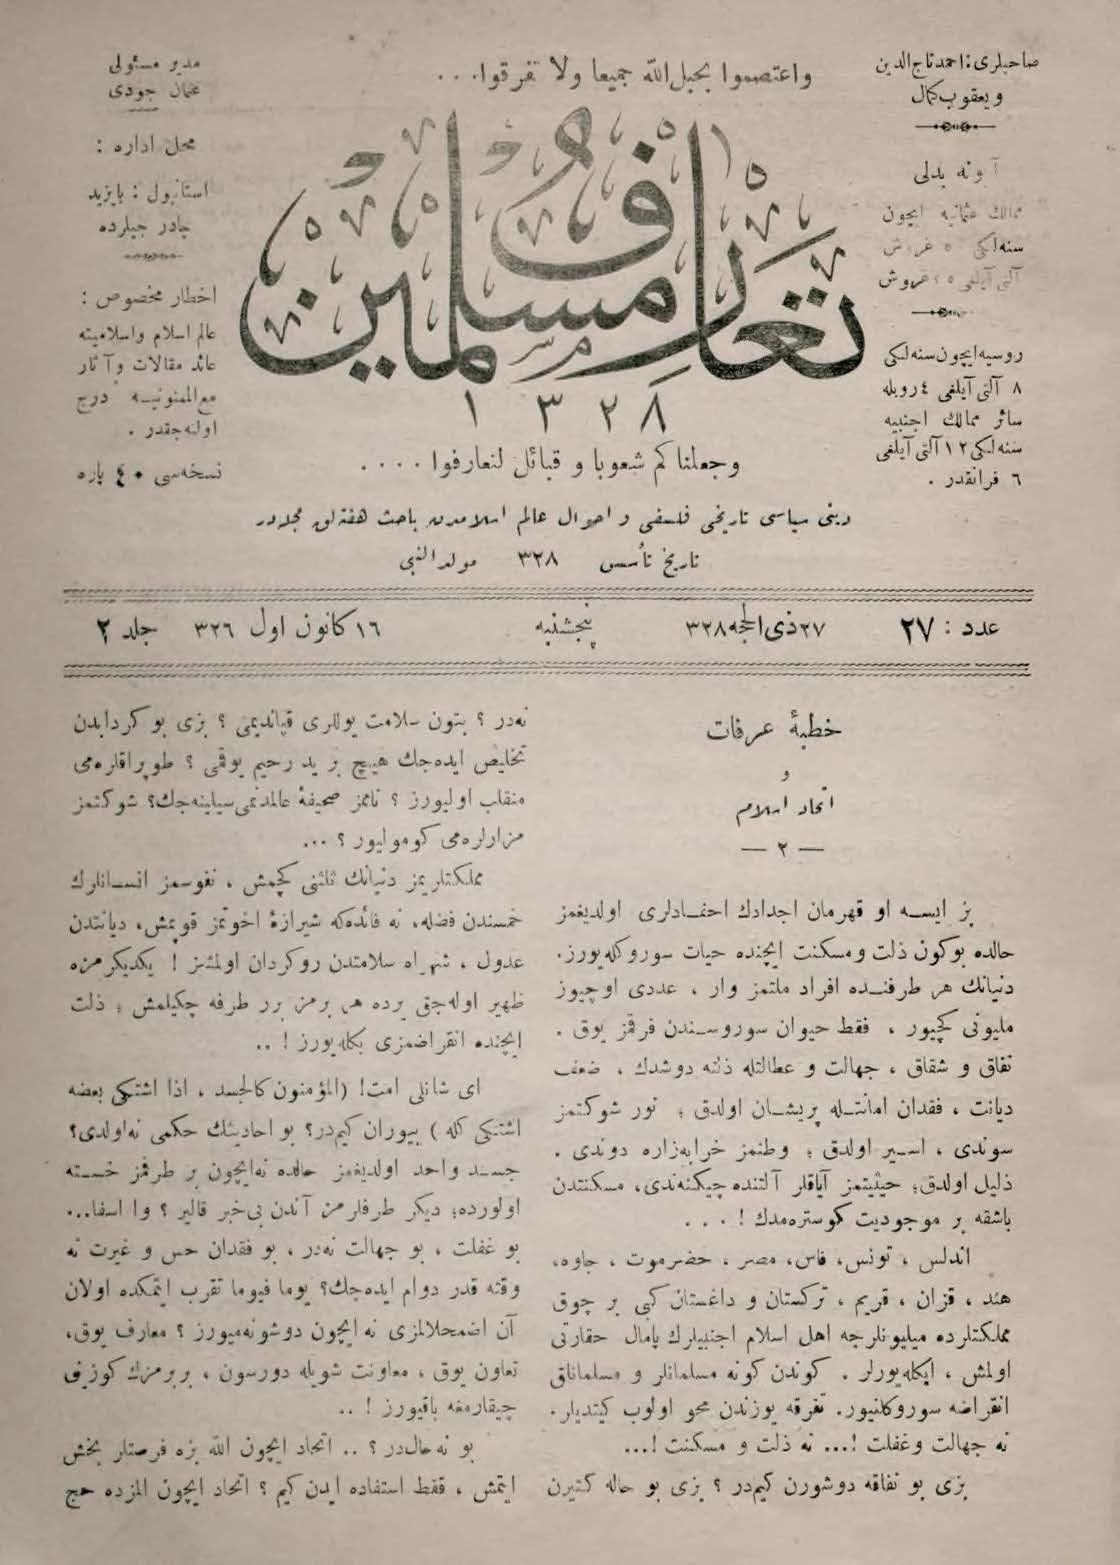 واعتصموا بحبل الله جميعا ولا تفرقوا...
صاحبلری: احمد تاج الدین
و یعقوب کمال
آبونه بدلی
ممالك عثمانیه ایچون
سنه‌لکی غروش
آلتی آیلغی غروش
روسیه ایچون سنه‌لکی
۸ آلتی آیلغی ٤ روبله
سائر ممالك اجنبیه
سنه‌لکی ۱۲ آلتی آیلغی
٦ فرانقدر .
مدیر مسئولی
عثمان جودی
محل اداره :
استانبول : بایزید
چادرجیلرده
اخطار مخصوص :
عالم اسلام واسلامیته
عائد مقالات وآثار
مع الممنونیه درج
اولنه‌جقدر .
نسخه‌سی ٤۰ پاره
تعارف مسلمین
۱۳۲۸
وجعلناكم شعوبا و قبائل لتعارفوا . . . .
دینی سیاسی تاریخی فلسفی و احوال عالم اسلامدن باحث هفته‌لق مجله‌در
تاریخ تأسس ۳۲۸ مولد النبی
عدد : ۲۷ ۲۷ ذی الحجه ۳۲۸ پنجشنبه ۱٦ كانون اول ۳۲٦ جلد ۲
خطبهٔ عرفات
و
اتحاد اسلام
— ۲ —
بز ایسه او قهرمان اجدادك احفادلری اولدیغمز
حالده بوكون ذلت ومسكنت ایچنده حیات سوروكله‌یورز.
دنیانك هر طرفنده افراد ملتمز وار ، عددی اوچیوز
ملیونی كچیور ، فقط حیوان سوروسندن فرقمز یوق .
نفاق و شقاق ، جهالت و عطالتله ذلته دوشدك ، ضعف
دیانت ، فقدان امانتله پریشان اولدق ؛ نور شوكتمز
سوندی ، اسیر اولدق ؛ وطنمز خرابه‌زاره دوندی .
ذلیل اولدق؛ حیثیتمز آیاقلر آلتنده چیكنه‌ندی، مسكنتدن
باشقه بر موجودیت كوستره‌مدك ! . . .
اندلس ، تونس، فاس، مصر ، حضرموت ، جاوه،
هند ، قزان ، قریم ، تركستان و داغستان كبی بر چوق
مملكتلرده میلیونلرجه اهل اسلام اجنبیلرك پامال حقارتی
اولمش ، ایكله‌یورلر . كوندن كونه مسلمانلر و مسلمانلق
انقراضه سوروكلنیور. تفرقه یوزندن محو اولوب كیتدیلر.
نه جهالت وغفلت !... نه ذلت و مسكنت !...
بزی بو نفاقه دوشورن كیم‌در ؟ بزی بو حاله كتیرن
نه‌در ؟ بتون سلامت یوللری قپاندیمی ؟ بزی بو كردابدن
تخلیص ایده‌جك هیچ بر ید رحیم یوقمی ؟ طوپراقلره‌می
منقلب اولیورز ؟ نامز صحیفهٔ عالمدنمی سیلینه‌جك؟ شوكتمز
مزارلره‌می كومولیور ؟ ...
مملكتلریمز دنیانك ثلثنی كچمش ، نفوسمز انسانلرك
خمسندن فضله، نه فائده‌كه شیرازهٔ اخوتمز قوپمش، دیانتدن
عدول ، شهراه سلامتدن روكردان اولمشز ! یكدیكرمزه
ظهیر اوله‌جق یرده هر برمز برر طرفه چكیلمش ؛ ذلت
ایچنده انقراضمزی بكله‌یورز ! ..
ای شانلی امت! (المؤمنون كالجسد ، اذا اشتكی بعضه
اشتكی كله ) بیوران كیم‌در؟ بو احادیثك حكمی نه اولدی؟
جسد واحد اولدیغمز حالده نه‌ایچون بر طرفمز خسته
اولورده؛ دیكر طرفلرمز آندن بی‌خبر قالیر ؟ وا اسفا...
بو غفلت ، بو جهالت نه‌در ، بو فقدان حس و غیرت نه
وقته قدر دوام ایده‌جك؟ یوما فیوما تقرب ایتمكده اولان
آن اضمحلالمزی نه ایچون دوشونه‌میورز ؟ معارف یوق،
تعاون یوق ، معاونت شویله دورسون ، بربرمزك كوزینی
چیقارمغه باقیورز ! ..
بو نه حال‌در ؟ .. اتحاد ایچون الله بزه فرصتلر بخش
ایتمش ، فقط استفاده ایدن كیم ؟ اتحاد ایچون المزده حج